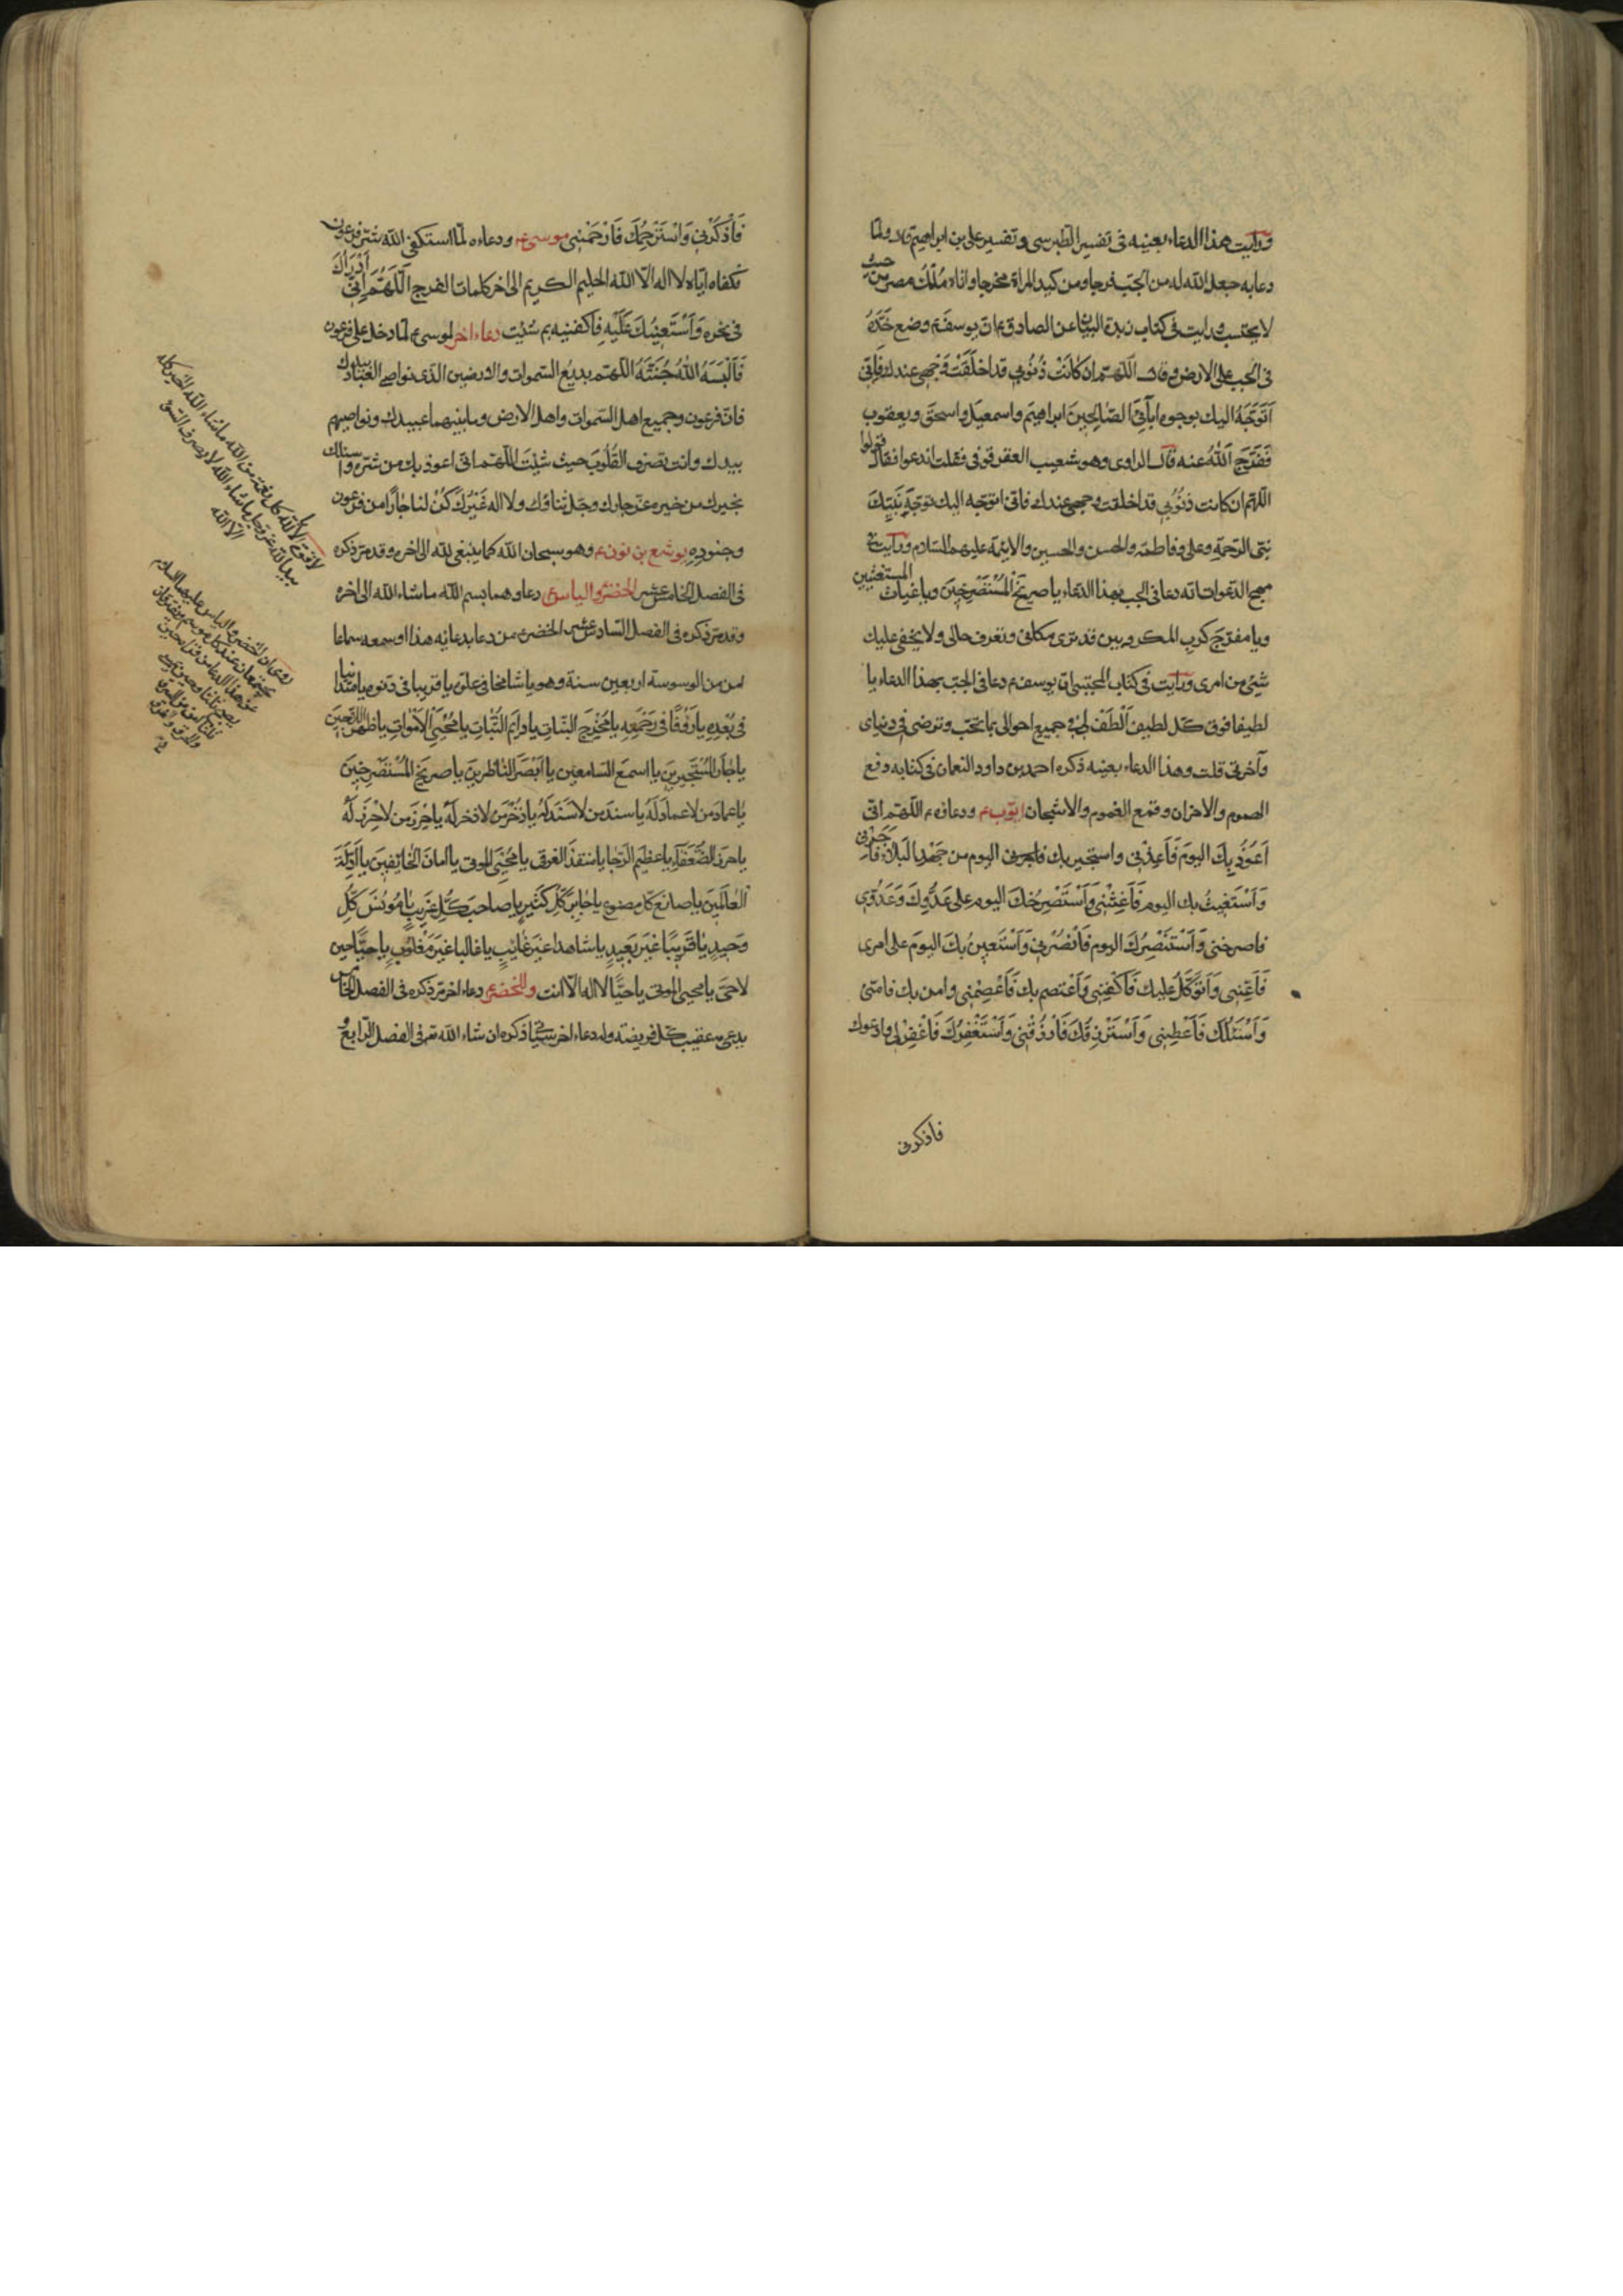 ورايت هذا الدعاء بعينه فى تفسير الطبرسى وتفسير على بن ابراهيم قال ولما
دعا به جعل الله له من الجب فرجا ومن كيد المراة مخرجا واتاه ملك مصر من حيث
لا يحتسب ورايت فى كتاب زبدة البيان عن الصادق ع ان يوسف ع وضع خده
فى الجب على الارض وقال اللهم ان كَانَتْ ذُنُوبِي قد اخلَقَتْ وَجهى عندك فَاِنّى
اَتَوَجَّهُ اليك بوجوه ابآئِىَ الصّالِحِينَ ابراهيمَ واسمعيل واسحق ويعقوب
فَفَرَّجَ اَللّٰهُ عنه قال الراوى وهو شعيب العقرقوفى فقلت اندعوا نقال قولوا
اللهم ان كانت ذنُوبِي قد اخلقت وجهى عندك فانى اتوجه اليك بوجه نَبِيّكَ
نبى الرحمة وعلى وفاطمة والحسن والحسين والايمة عليهم السلام ورايت فى
مهج الدعوات انه دعا فى الجب بهذا الدعاء يا صريخَ الْمُسْتَصْرِخِينَ ويا غياث المستغيثين
ويا مفرّج كرب المكروبين قد ترى مكانى وتعرف حالى ولا يخفى عليك
شئ من امرى ورايت فى كتاب المجتبى ان يوسف ع دعا فى الجب بهذا الدعاء يا
لطيفا فوق كل لطيف اَلْطُفْ لى فى جميع احوالى بما تحب وترضى فى دنياى
وآخرتى قلت وهذا الدعاء بعينه ذكره احمد بن داود النعمان فى كتابه دفع
الهموم والاحزان وقمع الغموم والاشجان ايّوب ع ودعاؤه ع اللهم انى
اَعوُذُ بِكَ اليومَ فَاَعِذْنى واستجير بك اليوم من جَهْدِ البَلاء فَاَجِرْنى
وَاَسْتَغِيثُ بك اليوم فَاَغِثْنِى وَاَسْتَصْرِخُكَ اليوم على عَدُوِّكَ وَعَدُوّى
فاصرخنى وَاَسْتَنْصِرُكَ اليوم فَانْصُرْنِى وَاَسْتَعِينُ بِكَ اليومَ على امرى
فَاَعِنِّى وَاَتَوَكَّلُ عليك فَاكْفِنِى وَاَعْتَصِم بك فَاعْصِمْنِى وامن بك فامنّى
وَاَسْئَلُكَ فَاَعْطِنِى وَاَسْتَرْزِقُكَ فَارْزُقْنِى وَاَسْتَغْفِرُكَ فَاغْفِرْ لى وادعوك
فاذكرنى
فَاذْكُرْنِى وَاَسْتَرْحِمُكَ فَارْحَمْنِى موسى ع ودعاءه لما استكفى الله شر فرعون
فكفاه اياه لا اله الا الله الحليم الكريم الى اخر كلمات الفرج اَللّهُمَّ اِنِّى اَدْرَاُكَ
فى نحره وَاَسْتَعِينُكَ عَلَيْهِ فاكفنيه بم شئت دعاء اخر لموسى ع لما دخل على فرعون
فَاَلْبَسَهُ اللّٰهُ جُنَّتَهُ اللهم بديع السموات والارضين الذى نواصى العباد بيدك
فان فرعون وجميع اهل السموات واهل الارض وما بينهما عبيدك ونواصيهم
بيدك وانت تصرف القُلُوبَ حيث شئتَ اللهم انى اعوذ بك من شره واسئلك
بخيرك من خيره عز جارك وجل ثناؤك ولا اله غَيْرُكَ كُنْ لنا جارًا من فرعون
وجنوده يوشع بن نون ع وهو سبحان الله كما ينبغى لله الى اخره وقد مر ذكره
فى الفصل الخامس عشر الخضر والياس ع دعاوهما بسم الله ما شاء الله الى اخره
وقد مر ذكره فى الفصل السادس عشر الخضر ع من دعا بدعائه هذا او سمعه سماعا
امن من الوسوسة اربعين سنة وهو يا شامخا فى علوه يا قريبا فى دنوه يا متدانيا
فى بُعْدِهِ يا رَؤُفًا فى رَحْمَتِهِ يا مُخْرِجَ النّباتِ يا دائِمَ الثَّباتِ يا مُحْيِىَ الاَمْواتِ يا ظهر اللاجين
يا جارَ الْمُسْتَجِيرِينَ يا اسمعَ السامعين يا ابْصَرَ الناظرين يا صريخ المُسْتَصْرِخِينَ
يا عمادَ من لا عماد لَهُ يا سندَ من لا سَنَدَ لَهُ يا ذُخْرَ من لا ذخر لَهُ يا حِرْزَ من لا حِرْزَ لَهُ
يا حرز الضُّعَفَآءِ يا عظيم الرَّجا يا منقذَ الغرقى يا مُحْيِىَ الموتى يا اَمانَ الخائِفينَ يا اِلٰهَ
العالَمِينَ يا صانع كل مصنوع يا جابرَ كُلِّ كسير يا صاحبَ كُلِّ غَرِيبٍ يا مُونسَ كُلِّ
وَحيدٍ يا قَرِيبًا غَيْرَ بَعِيدٍ يا شاهدا غيرَ غائِبٍ يا غالبا غيرَ مَغْلُوبٍ يا حيًّا حين
لا حَىَّ يا محيى الموتى يا حيًّا لا اله الا انت وللخضر ع دعاء اخر مر ذكره فى الفصل الخامس
يدعى به عقيب كل فريضة وله دعاء اخر سياتى ذكره ان شاء الله تع فى الفصل الرابع
لا قوة الا بالله كل نعمة من الله ما شاء الله الخير كله
بيد الله عز وجل ما شاء الله لا يصرف السوء
الا الله
روى ان الخضر والياس عليهما السلام
يجتمعان عند كل موسم فيفترقان
عن هذا الدعاء من قراه حين
يصبح ثلثا وحين يمسى